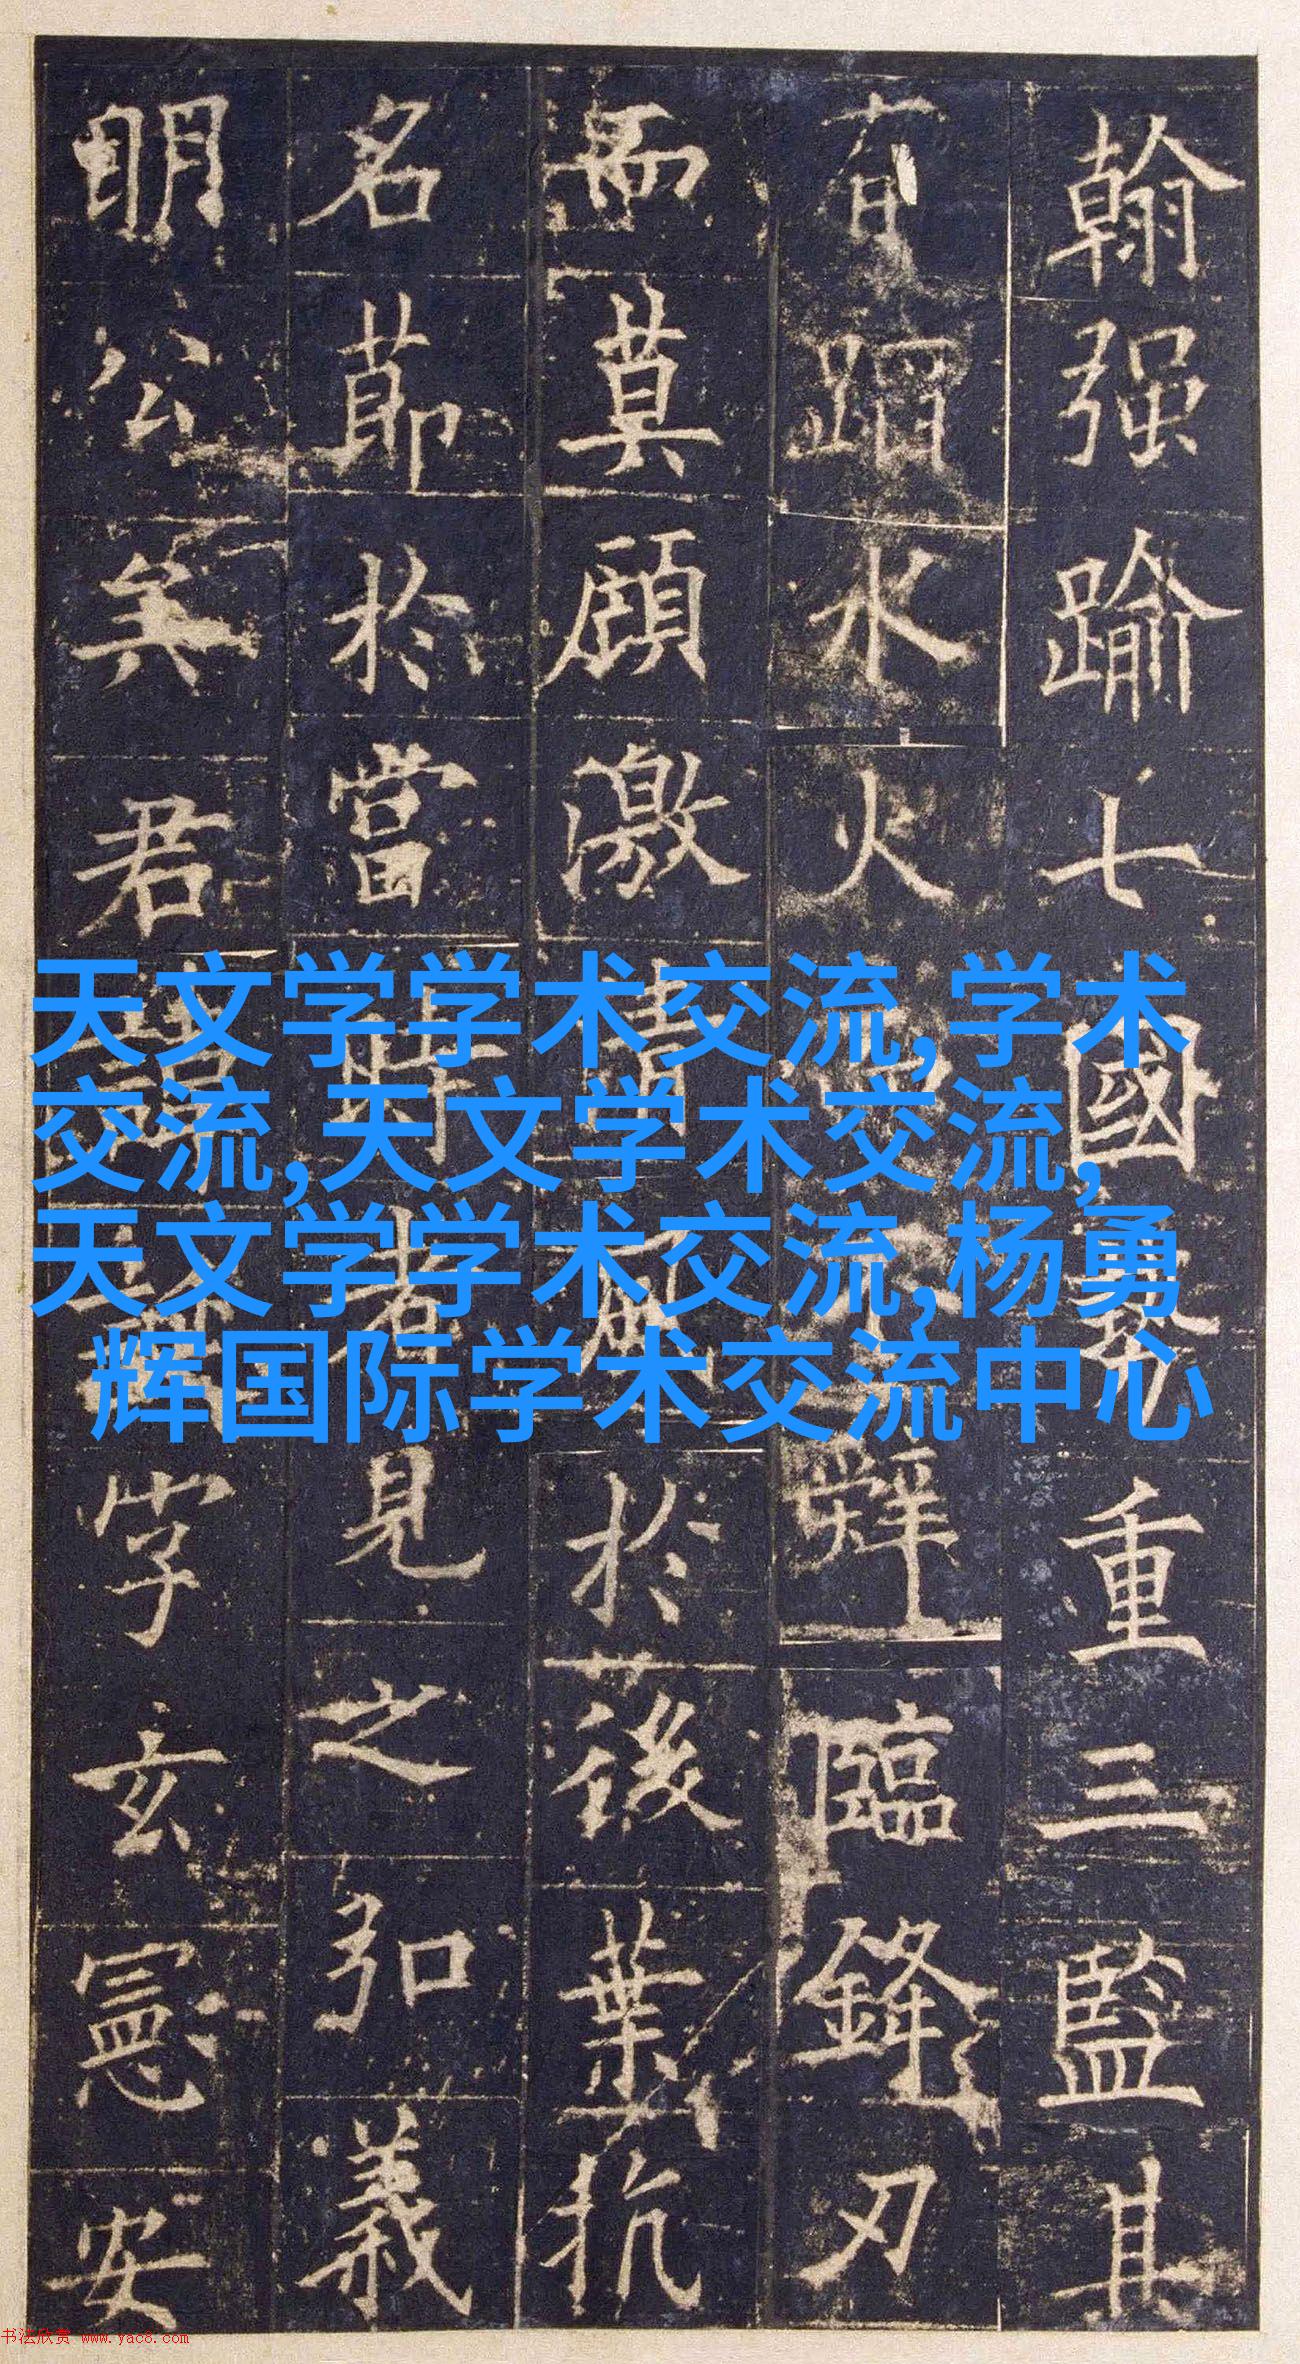 翰强踰七國重三監其
有蹈水火辤臨鋒刃
而莫顧激清於後葉抗
名節於當時者見之弘義
明公矣君諱字玄憲安
天文学学术交流,学术
交流,天文学术交流,
天文学学术交流,杨勇
辉国际学术交流中心
书法欣赏 www.yac8.com